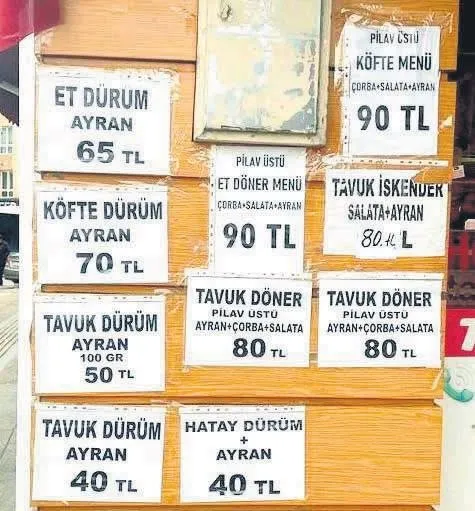 ET DÜRUM
AYRAN
65 TL
KÖFTE DÜRÜM
AYRAN
70 TL
TAVUK DÜRÜM
AYRAN
100 GR
50 TL
TAVUK DÜRÜM
AYRAN
40 TL
PİLAV ÜSTÜ
ET DÖNER MENÜ
ÇORBA+SALATA+AYRAN
90 TL
TAVUK DÖNER
PİLAV ÜSTÜ
AYRAN+ÇORBA+SALATA
80 TL
HATAY DÜRÜM
+
AYRAN
40 TL
PİLAV ÜSTÜ
KÖFTE MENÜ
ÇORBA+SALATA+AYRAN
90 TL
TAVUK İSKENDER
SALATA+AYRAN
80.TL L
TAVUK DÖNER
PİLAV ÜSTÜ
AYRAN+ÇORBA+SALATA
80 TL